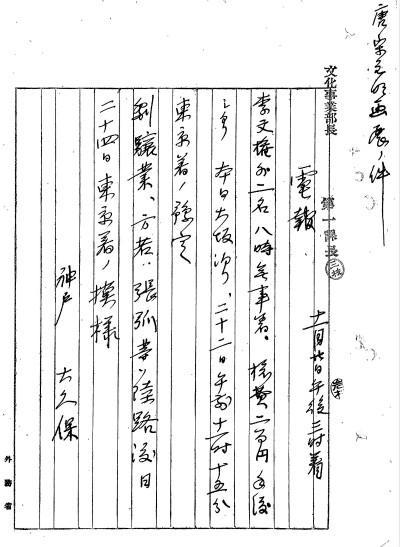 唐宋元明画展ノ件
文化事業部長
第一課長
電報
十一月廿日午後三時着
李文権外二名八時無事着。
本日大坂泊、二十二日午前十一時十五分
東京着ノ予定
劉驤業、方若、張弧等ハ陸路後日
二十四日東京着ノ模様
神戸 大久保
外務省